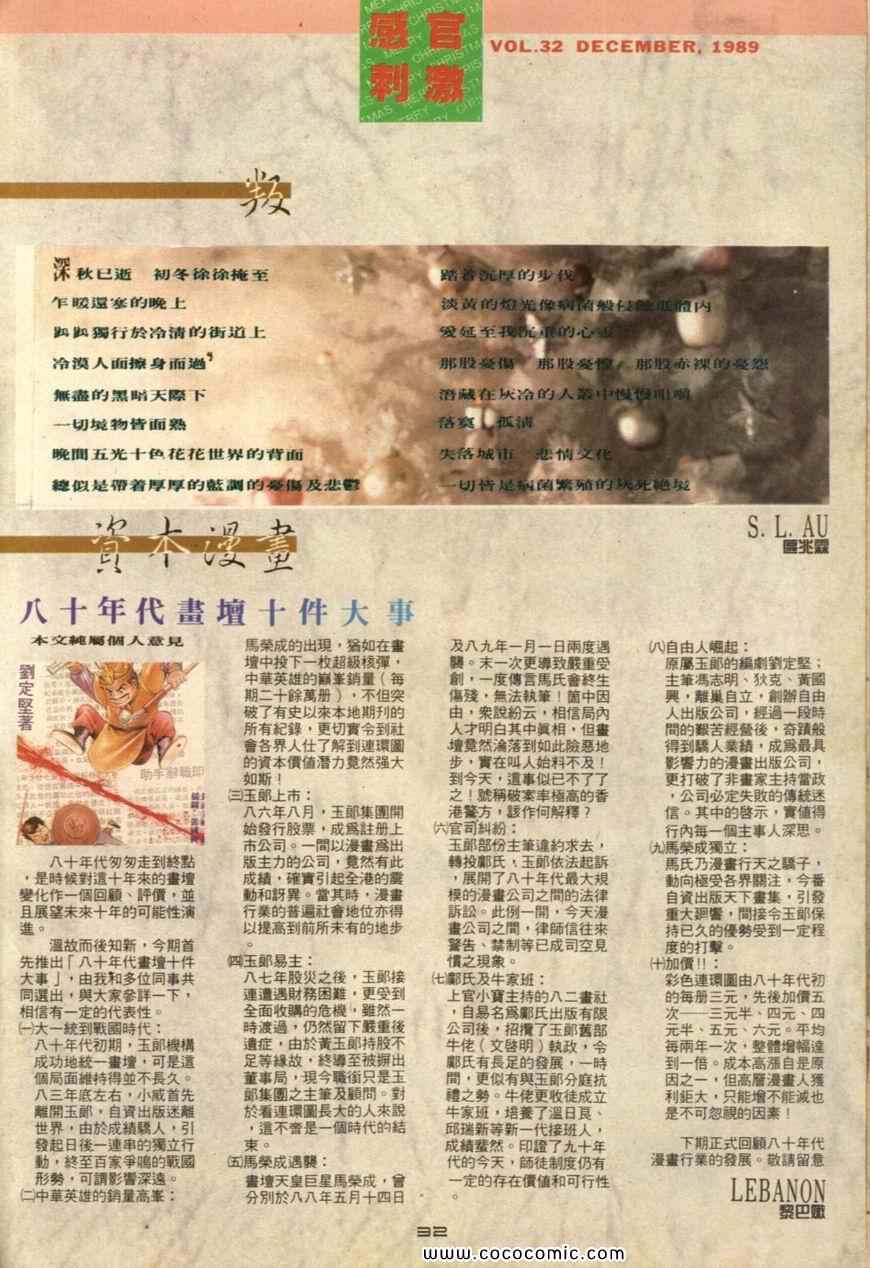 感官
刺激
VOL.32 DECEMBER, 1989
叛
深秋已逝 初冬徐徐掩至
乍暖還寒的晚上
踽踽獨行於冷清的街道上
冷漠人面擦身而過
無盡的黑暗天際下
一切境物皆面熟
晚間五光十色花花世界的背面
總似是帶着厚厚的藍調的憂傷及悲鬱
踏着沉厚的步伐
淡黃的燈光像病菌般侵蝕進體內
蔓延至我沉重的心靈
那股憂傷 那股憂惶 那股赤裸的憂怨
潛藏在灰冷的人叢中慢慢咀嚼
落寞 孤清
失落城市 悲情文化
一切皆是病菌繁殖的灰死絕境
S. L. AU
區兆霖
資本漫畫
八十年代畫壇十件大事
本文純屬個人意見
劉定堅著
助手辭職即
八十年代匆匆走到終點
，是時候對這十年來的畫壇
變化作一個回顧、評價，並
且展望未來十年的可能性演
進。
溫故而後知新，今期首
先推出「八十年代畫壇十件
大事」，由我和多位同事共
同選出，與大家參詳一下，
相信有一定的代表性。
㈠大一統到戰國時代：
八十年代初期，玉郎機構
成功地統一畫壇，可是這
個局面維持得並不長久。
八三年底左右，小威首先
離開玉郎，自資出版迷離
世界，由於成績驕人，引
發起日後一連串的獨立行
動，終至百家爭鳴的戰國
形勢，可謂影響深遠。
㈡中華英雄的銷量高峯：
馬榮成的出現，猶如在畫
壇中投下一枚超級核彈，
中華英雄的巔峯銷量（每
期二十餘萬册），不但突
破了有史以來本地期刊的
所有紀錄，更切實令到社
會各界人仕了解到連環圖
的資本價值潛力竟然强大
如斯！
㈢玉郎上市：
八六年八月，玉郎集團開
始發行股票，成爲註册上
市公司。一間以漫畫爲出
版主力的公司，竟然有此
成績，確實引起全港的震
動和訝異。當其時，漫畫
行業的普遍社會地位亦得
以提高到前所未有的地步
。
㈣玉郎易主：
八七年股災之後，玉郎接
連遭遇財務困難，更受到
全面收購的危機，雖然一
時渡過，仍然留下嚴重後
遺症，由於黃玉郎持股不
足等緣故，終導至被摒出
董事局，現今職銜只是玉
郎集團之主筆及顧問。對
於看連環圖長大的人來說
，這不啻是一個時代的結
束。
㈤馬榮成遇襲：
畫壇天皇巨星馬榮成，曾
分別於八八年五月十四日
及八九年一月一日兩度遇
襲。末一次更導致嚴重受
創，一度傳言馬氏會終生
傷殘，無法執筆！箇中因
由，衆說紛云，相信局內
人才明白其中眞相，但畫
壇竟然淪落到如此險惡地
步，實在叫人始料不及！
到今天，這事似已不了了
之！號稱破案率極高的香
港警方，該作何解釋？
㈥官司糾紛：
玉郎部份主筆違約求去，
轉投鄺氏，玉郎依法起訴
，展開了八十年代最大規
模的漫畫公司之間的法律
訴訟。此例一開，今天漫
畫公司之間，律師信往來
警告、禁制等已成司空見
慣之現象。
㈦鄺氏及牛家班：
上官小寶主持的八二畫社
，自易名爲鄺氏出版有限
公司後，招攬了玉郎舊部
牛佬（文啓明）執政，令
鄺氏有長足的發展，一時
間，更似有與玉郎分庭抗
禮之勢。牛佬更收徒成立
牛家班，培養了溫日良、
邱瑞新等新一代接班人，
成績蜚然。印證了九十年
代的今天，師徒制度仍有
一定的存在價値和可行性
。
㈧自由人崛起：
原屬玉郎的編劇劉定堅；
主筆馮志明、狄克、黃國
興，離巢自立，創辦自由
人出版公司，經過一段時
間的艱苦經營後，奇蹟般
得到驕人業績，成爲最具
影響力的漫畫出版公司，
更打破了非畫家主持當政
，公司必定失敗的傳統迷
信。其中的啓示，實値得
行內每一個主事人深思。
㈨馬榮成獨立：
馬氏乃漫畫行天之驕子，
動向極受各界關注，今番
自資出版天下畫集，引發
重大廻響，間接令玉郎保
持已久的優勢受到一定程
度的打擊。
㈩加價!!：
彩色連環圖由八十年代初
的每册三元，先後加價五
次——三元半、四元、四
元半、五元、六元。平均
每兩年一次，整體增幅達
到一倍。成本高漲自是原
因之一，但高層漫畫人獲
利鉅大，只能增不能減也
是不可忽視的因素！
下期正式回顧八十年代
漫畫行業的發展。敬請留意
LEBANON
黎巴嫩
32
www.cococomic.com